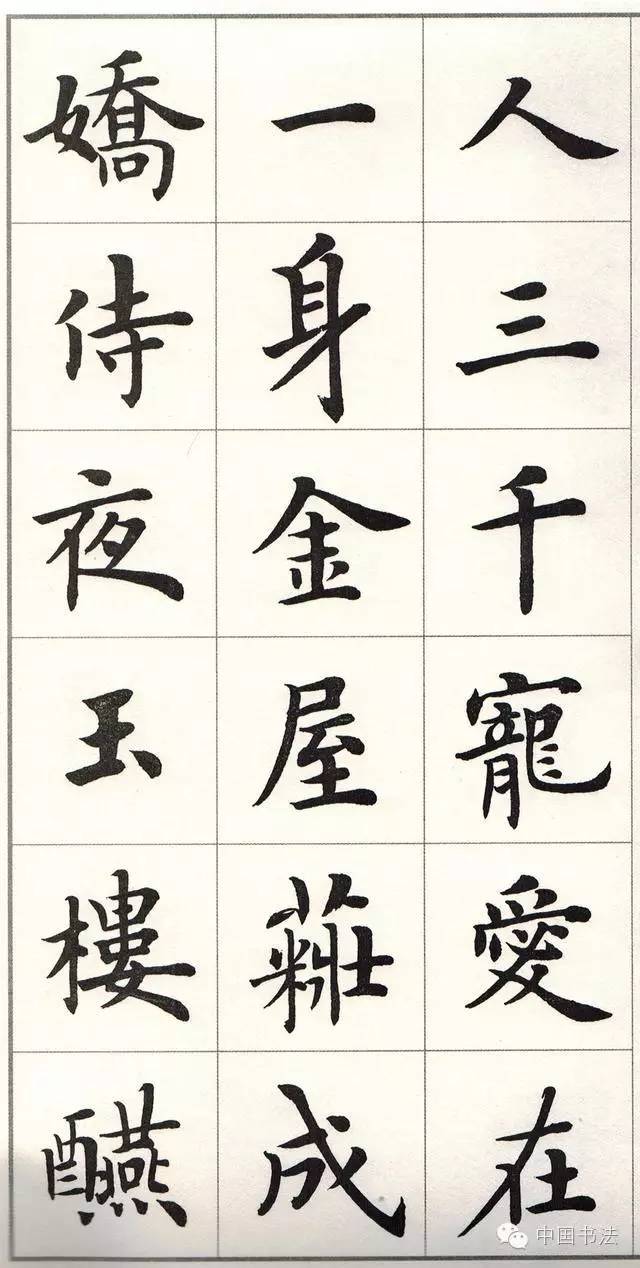 人三千寵愛在
一身金屋糚成
嬌侍夜玉樓醼
中国书法